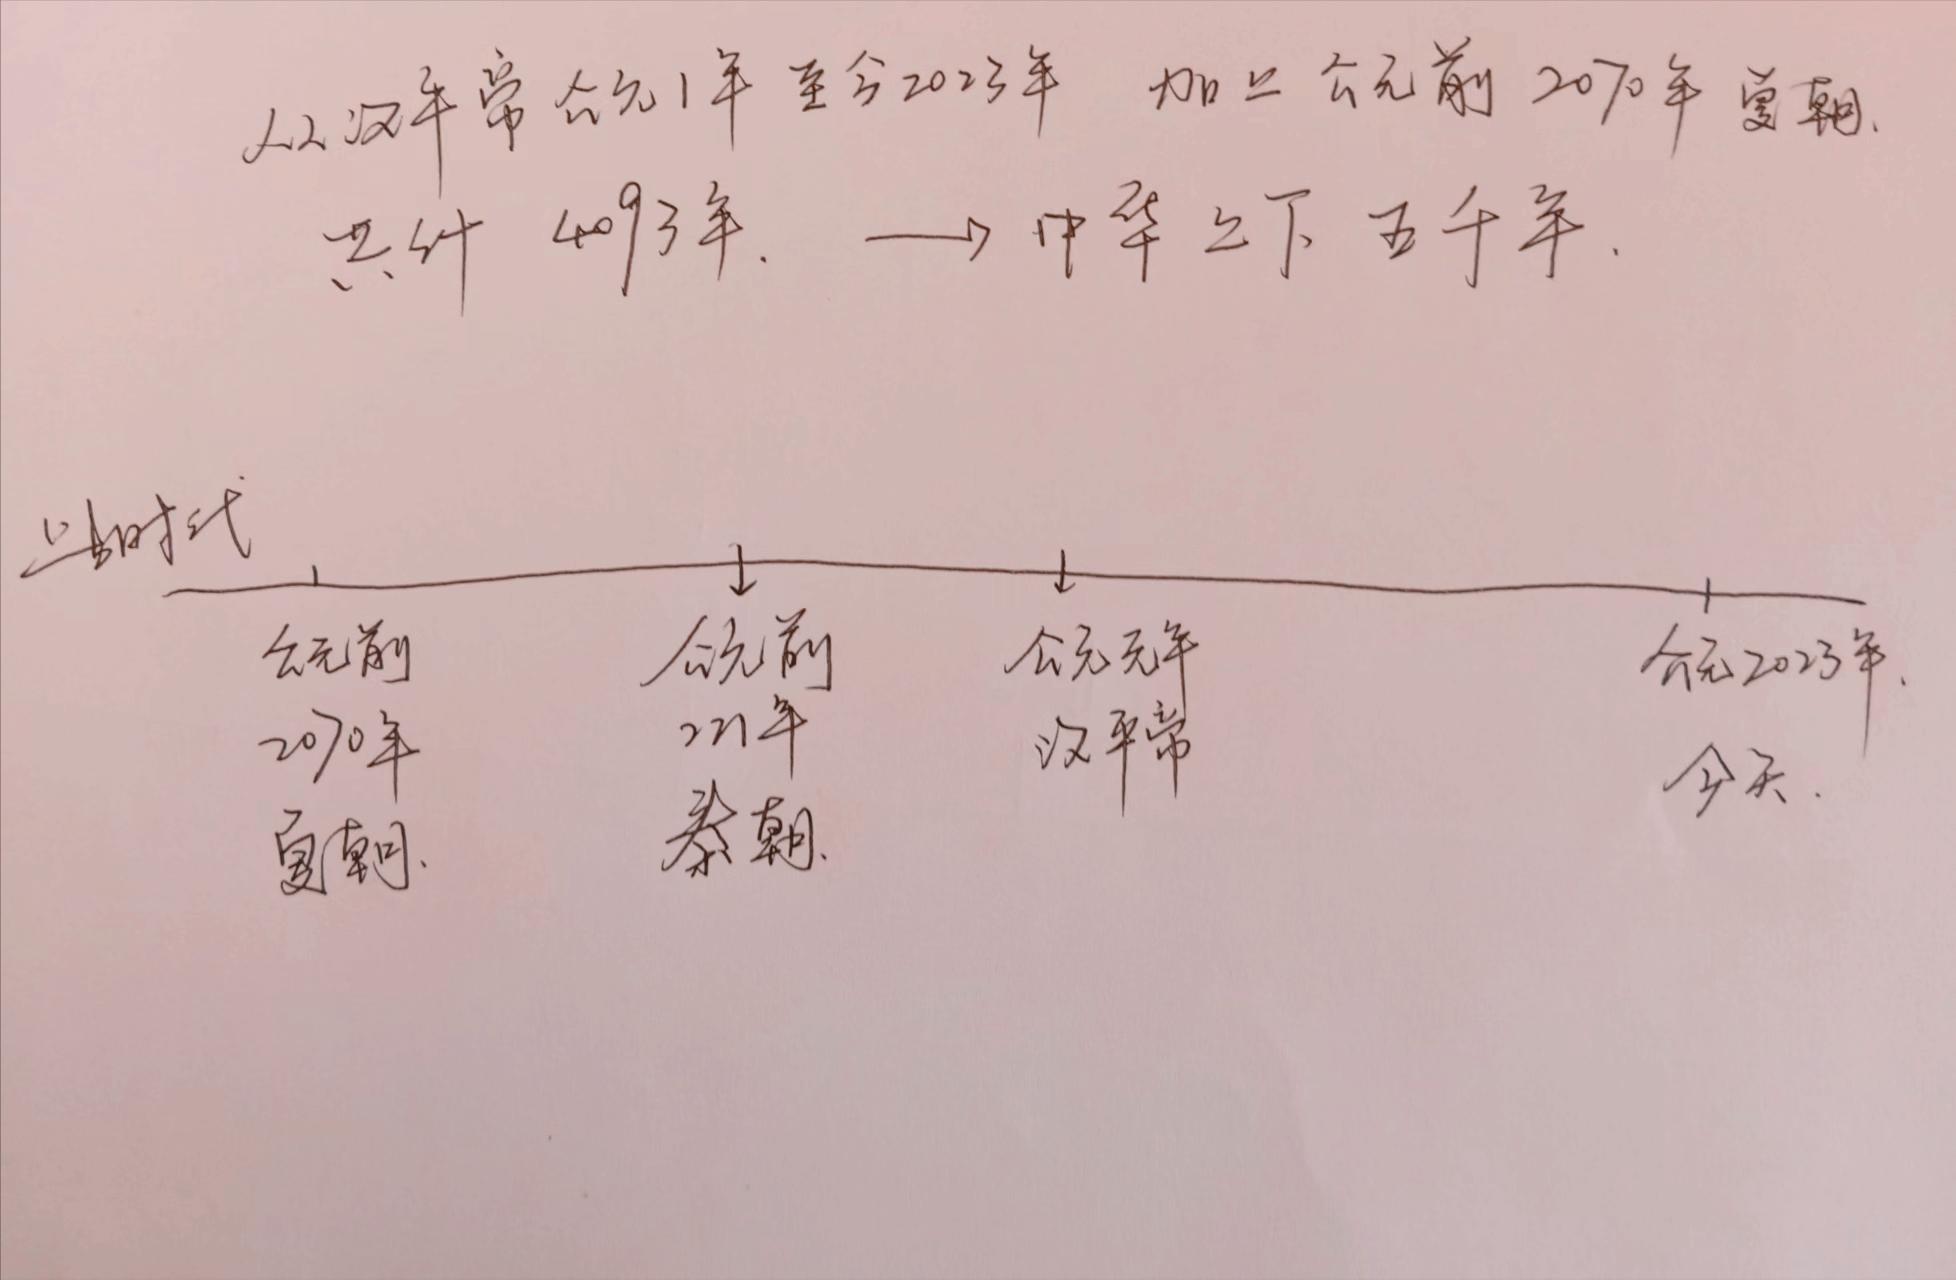 从汉平帝公元1年至今2023年 加上公元前2070年夏朝.
共计 4093年. → 中华上下五千年.
上古时代
公元前
2070年
夏朝.
公元前
221年
秦朝.
公元元年
汉平帝
公元2023年.
今天.